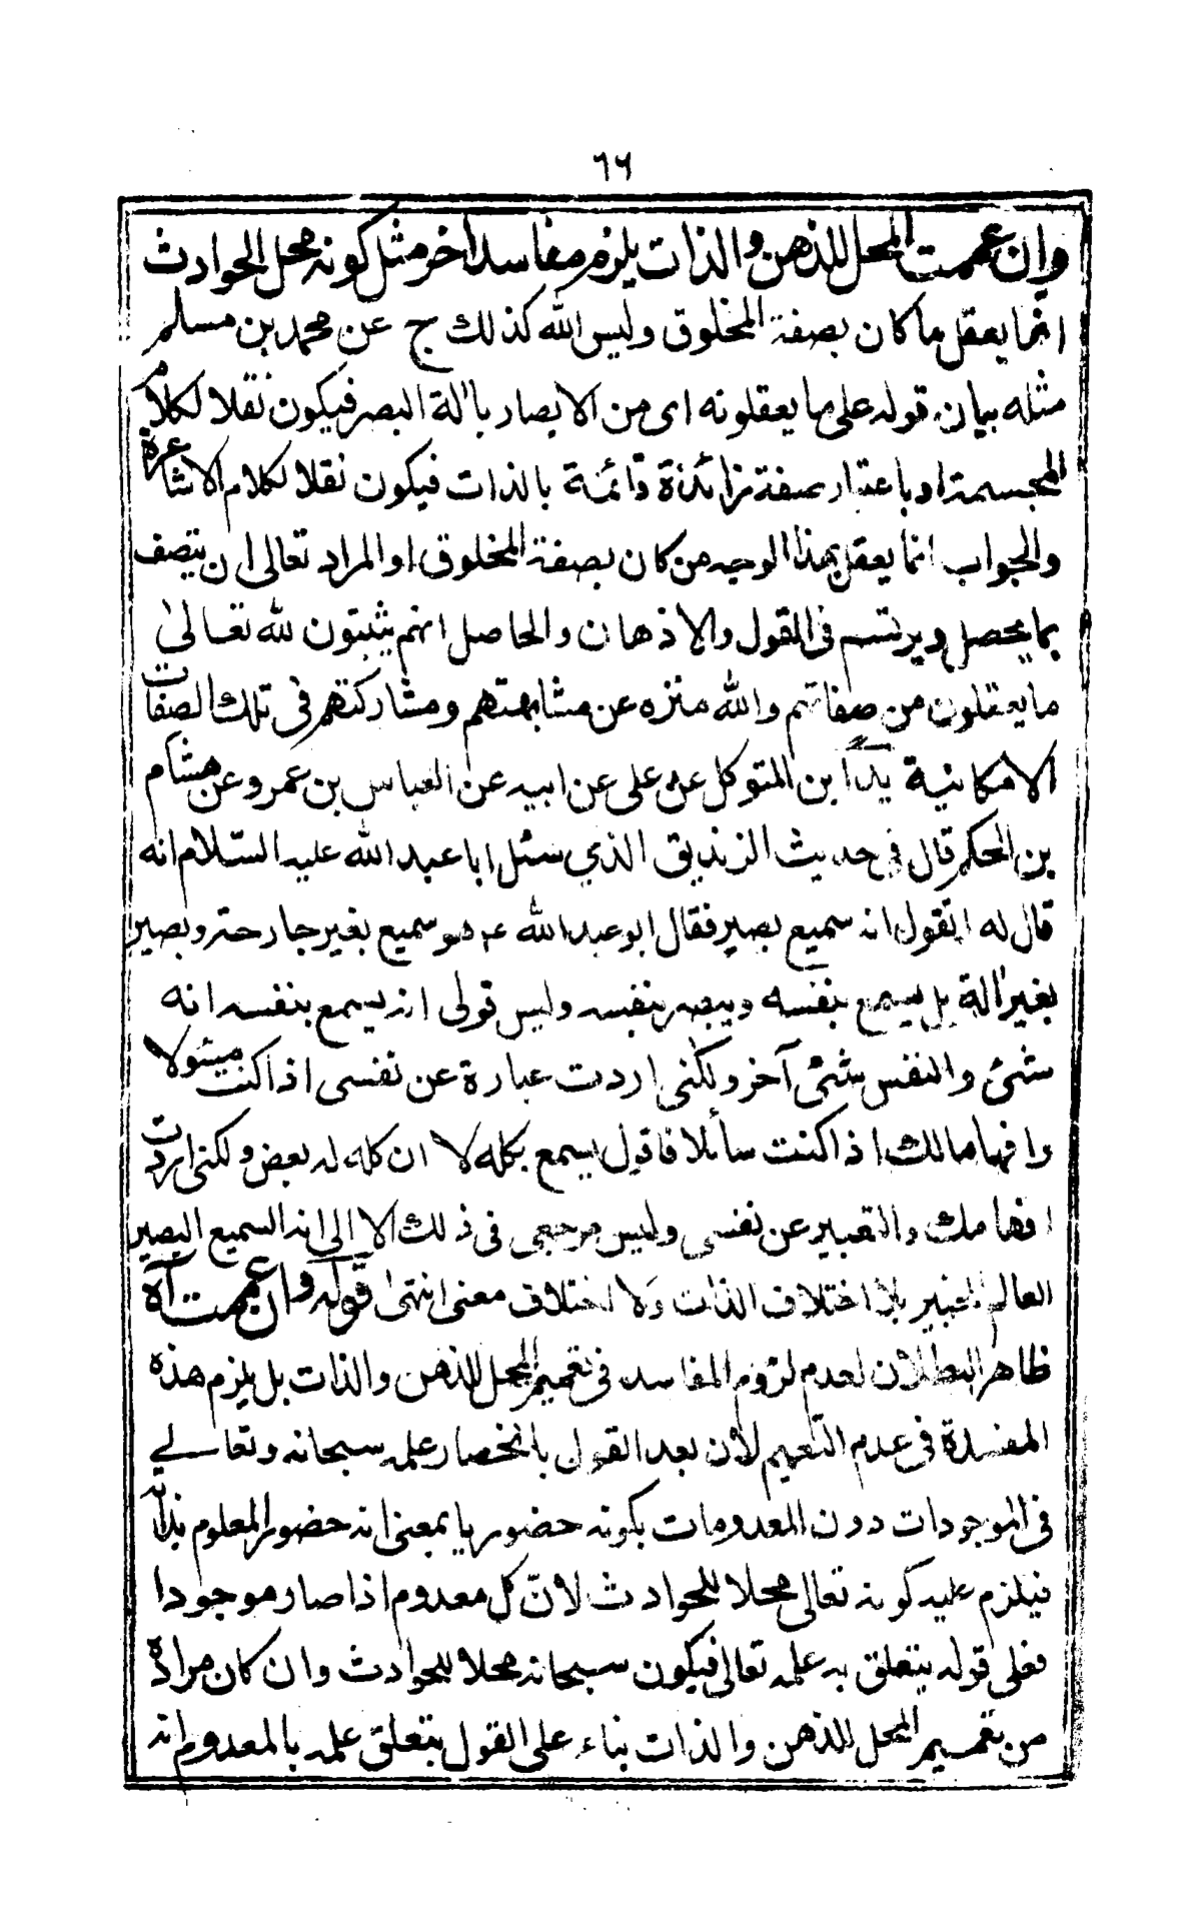 ٦٦
وان عممت المحل للذهن والذات يلزم مفاسد اخر مثل كونه محل الحوادث
انما يعقل ما كان بصفة المخلوق وليس الله كذلك ج عن محمد بن مسلم
مثله بيان قوله على ما يعقلونه اى من الابصار بالة البصر فيكون نقلا لكلام
المجسمة او باعتبار صفة زائدة قائمة بالذات فيكون نقلا لكلام الاشاعرة
والجواب انما يعقل بهذا الوجه من كان بصفة المخلوق او المراد تعالى ان يتصف
بما يحصل ويرتسم فى العقول والاذهان والحاصل انهم يثبتون لله تعالى
ما يعقلون من صفاتهم والله منزه عن مشابهتهم ومشاركتهم فى تلك الصفات
الامكانية يد ابن المتوكل عن على عن ابيه عن العباس بن عمرو عن هشام
بن الحكم قال فى حديث الزنديق الذي سئل ابا عبد الله عليه السّلام انه
قال له اتقول انه سميع بصير فقال ابو عبد الله ع هو سميع بغير جارحة وبصير
بغير الة بل يسمع بنفسه ويبصر بنفسه وليس قولى انه يسمع بنفسه انه
شئ والنفس شئ آخر ولكنى اردت عبارة عن نفسى اذا كنت مسئولا
وافهاما لك اذا كنت سائلا فاقول يسمع بكله لا ان كله له بعض ولكنى اردت
افهامك والتعبير عن نفسى وليس مرجعى فى ذلك الا الى انه السميع البصير
العالم الخبير بلا اختلاف الذات ولا اختلاف معنى انتهى قوله وان عممت آه
ظاهر البطلان لعدم لزوم المفاسد فى تعميم المحل للذهن والذات بل يلزم هذه
المفسدة فى عدم التعميم لان بعد القول بانحصار علمه سبحانه وتعالى
فى الموجودات دون المعدومات بكونه حضوريا بمعنى انه حضور المعلوم بذاته
فيلزم عليه كونه تعالى محلا للحوادث لانّ كل معدوم اذا صار موجودا
فعلى قوله يتعلق به علمه تعالى فيكون سبحانه محلا للحوادث وان كان مراده
من تعميم المحل للذهن والذات بناء على القول بتعلق علمه بالمعدوم انه